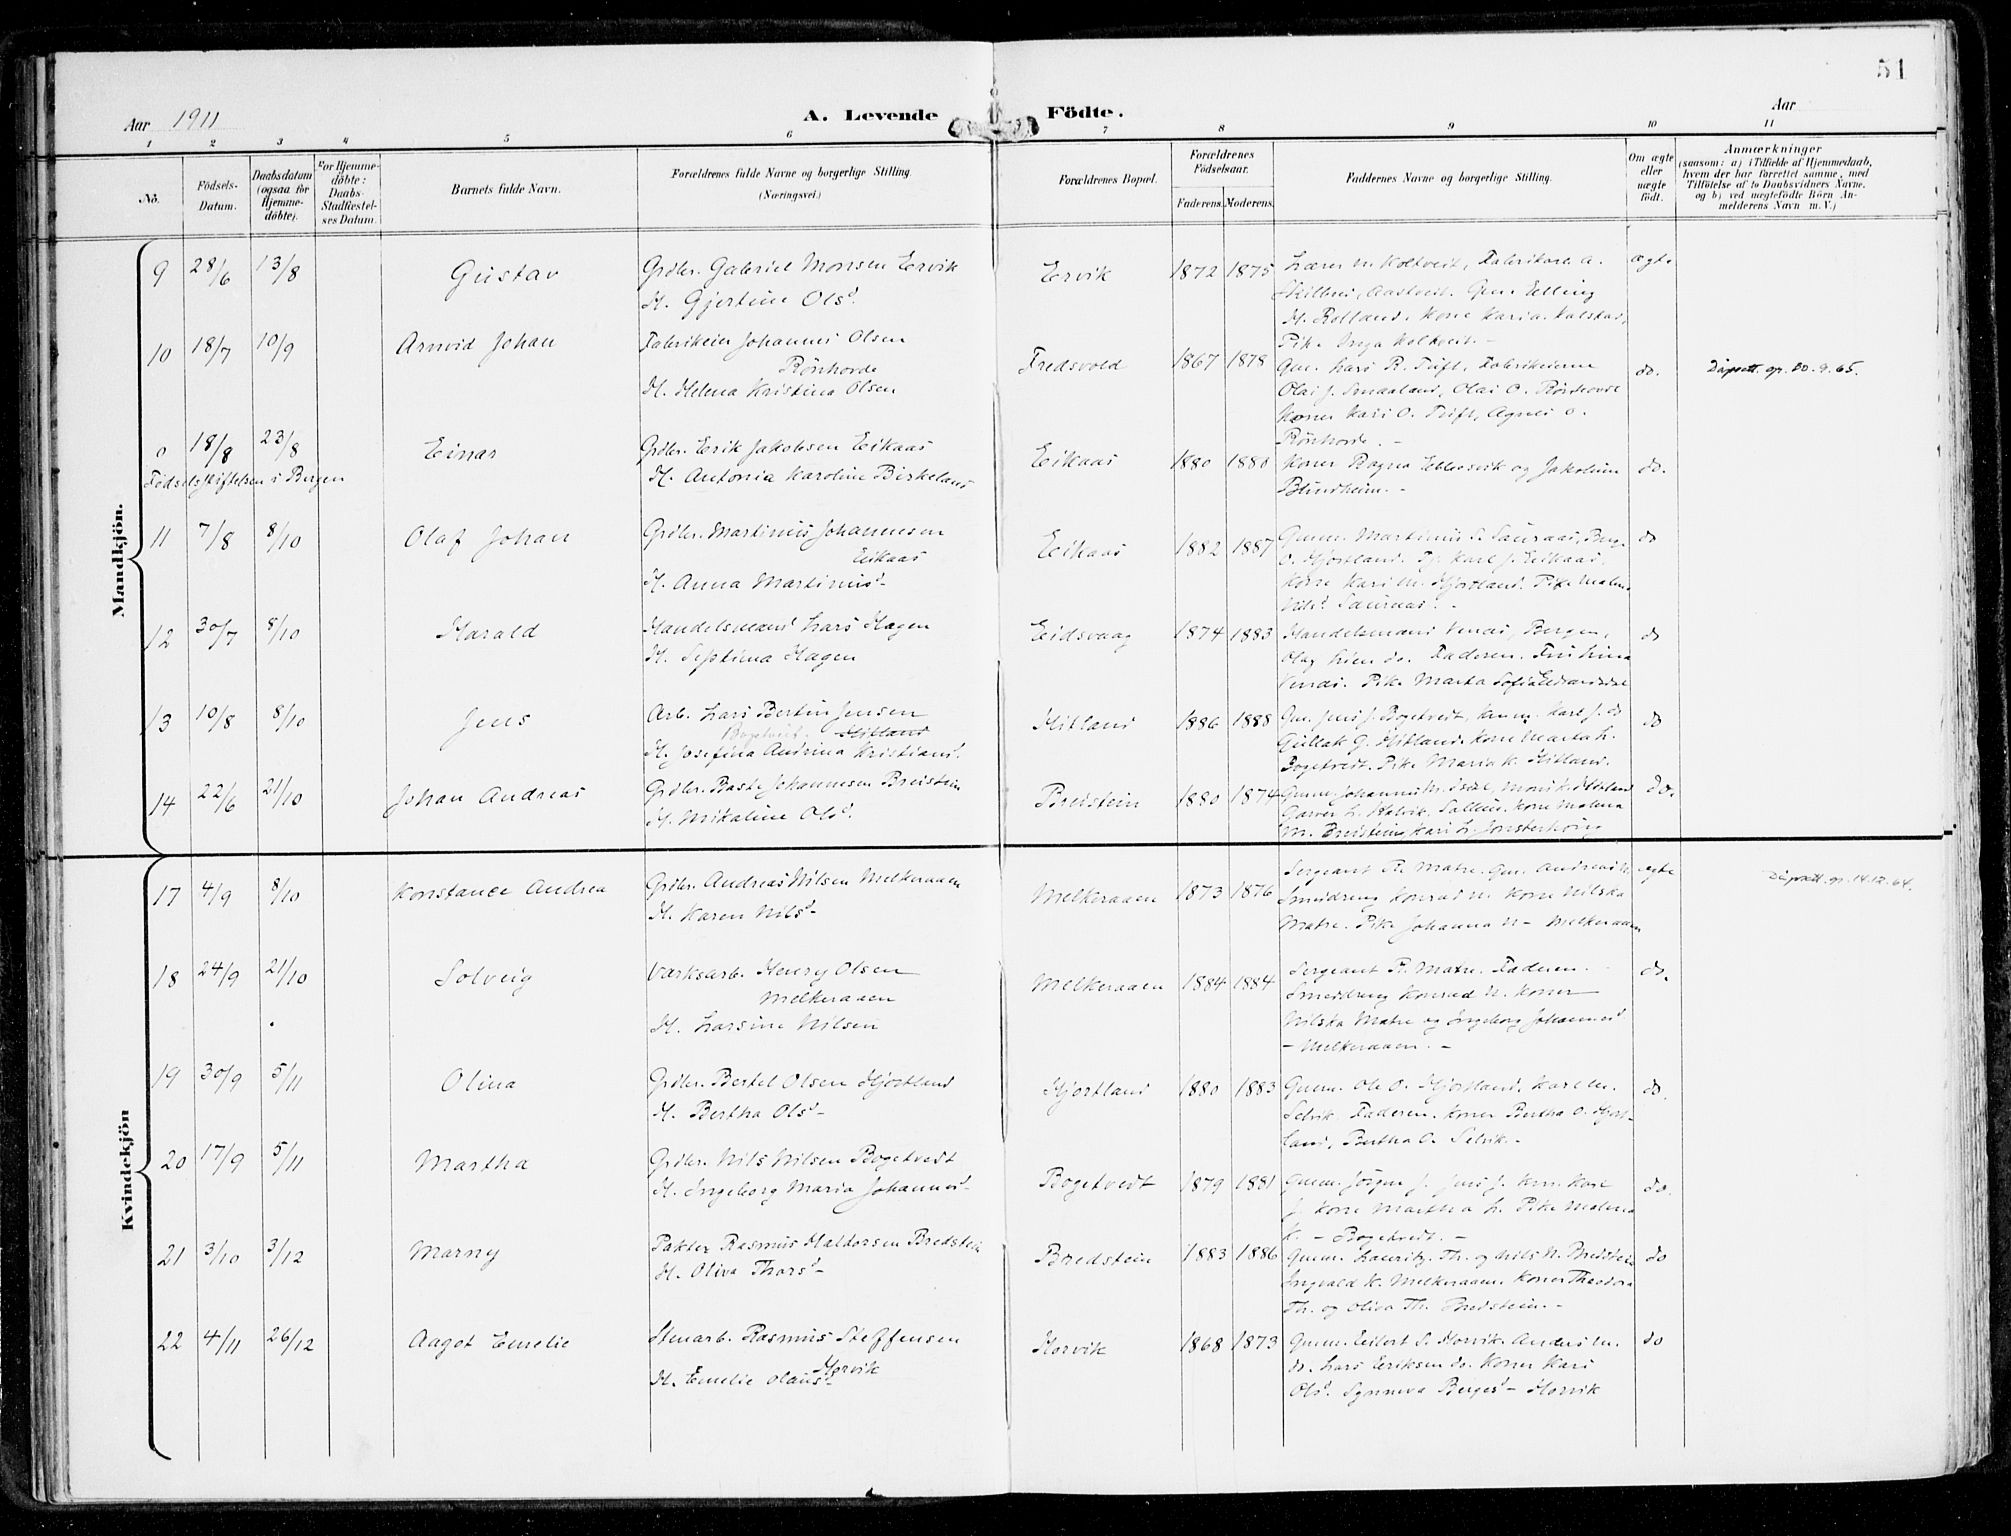 51
Aar 1911
A. Levende Födte.
Aar
1 2 3 4 5 6 7 8 9 10 11
No.
Födsels-Datum.
Daabsdatum (ogsaa for Hjemme-döbte).
For Hjemme-döbte: Daabs-Stadfæstel-ses Datum.
Barnets fulde Navn.
Forældrenes fulde Navne og borgerlige Stilling. (Næringsvei.)
Forældrenes Bopæl.
Forældrenes Födselsaar.
Faderens. Moderens.
Faddernes Navne og borgerlige Stilling.
Om ægte eller uægte födt.
Anmærkninger
(saasom: a) i Tilfælde af Hjemmedaab, hvem der har forrettet samme, med Tilföielse af to Daabsvidners Navne. og b) ved uægtefödte Börn An-melderens Navn m. V.)
Mandkjön.
9 28/6 13/8 Gustav
Grdbr. Gabriel Monsen Ervik
H. Gjertine Olsd.
Ervik 1872 1875
Lærer M. Koltveit, Fabrikarb. A.
ægte
10 18/7 10/9 Arnvid Johan
Fabrikeier Johannes Olsen
Rönhovde
H. Helena Kristina Olsen
Fredsvold 1867 1878
Gm. Lars R. Tuft, Fabrikeierne
Olai J. Smaaland, Olai O. Rönhovde
Koner Kari O. Tuft, Agnes O.
Rönhovde. -
do.
Dåpsatt. gr. 20.9.65.
o 18/8 23/8 Einar
Födselsstiftelsen i Bergen
Grdbr. Erik Jakobsen Eikaas
H. Antonia Karoline Birkeland
Eikaas 1880 1880
Koner Ragna Ellevsvik og Jakobine
Blindheim. -
do.
11 7/8 8/10 Olaf Johan
Grdbr. Martinus Johannesen
Eikaas
H. Anna Martinusd-
Eikaas 1882 1887
Gmm. Martinus S. Sauraas, Berge
O. Hjortland. Uj. Karl J. Eikaas.
Kone Kari M. Hjortland. Pike Malena
Nilsd. Sauraas. -
do
12 30/7 8/10 Harald
Handelsmand Lars Hagen
H. Septima Hagen
Eidsvaag 1874 1883
Handelsmand Venås, Bergen,
Olaf Lien do. Faderen. Fru Lina
Venås. Pike Marta Sofie
do
13 10/8 8/10 Jens
Arb. Lars Bertin Jensen
Bogetveit. Hitland
H. Josefina Andrina Kristiansd.
Hitland 1886 1888
Gm. Jens J. Bogetvedt, Unm. Karl J. do
Gullak G. Hitland. Kone Marta L.
Bogetvedt. Pike Maria K. Hitland.
do
14 22/6 21/10 Johan Andreas
Grdbr. Baste Johannesen Breistein
H. Mikaline Olsd.
Bredstein 1880 1874
M. Bredstein, Kari L.
do.
Kvindekjön
17 4/9 8/10 Konstance Andrea
Grdbr. Andreas Nilsen Melkeraaen
H. Karen Nilsd-
Melkeraaen 1873 1876
Sergeant R. Matre. Gm. Andreas N.
Smeddreng Konrad N. Kone Nilska
Matre. Pike Johanna N - Melkeraaen
ægte
Dåpsatt. gr. 14.12.64.
18 24/9 21/10 Solveig
Værksarb. Henry Olsen
Melkeraaen
H. Larsine Nilsen
Melkeraaen 1884 1884
Sergeant R. Matre. Faderen.
Smeddreng Konrad N. Koner
Nilska Matre og Ingeborg Johannesd
- Melkeraaen. -
do.
19 30/9 5/11 Olina
Grdbr. Bertel Olsen Hjortland
H. Bertha Olsd-
Hjortland 1880 1883
Gmm. Ole O. Hjortland, Karl M.
Selvik. Faderen. Koner Bertha O. Hjort-
land, Bertha O. Selvik. -
do.
20 17/9 5/11 Martha
Grdbr. Nils Nilsen Bogetvedt
H. Ingeborg Maria Johannesd-
Bogetvedt 1879 1881
Gmm. Jörgen J. Jens J. Unm. Karl
J. Kone Martha L. Pike Malena
K. - Bogetvedt. -
do.
21 3/10 3/12 Marny
Pakter Rasmus Haldorsen Bredstein
H. Oliva Thorsd-
Bredstein 1883 1886
Gmm. Lauritz Th. og Nils N. Bredstein
Ingvald K. Melkeraaen. Koner Theodora
Th. og Oliva Th. Bredstein. -
do
22 4/11 26/12 Aagot Emelie
Stenarb. Rasmus Steffensen
Horvik
H. Emelie Olausd-
Horvik 1868 1873
Gmm. Eilert S. Horvik. Anders M.
do. Lars Eriksen do. Koner Kari
Olsd. Synneva Bergesd - Horvik
do